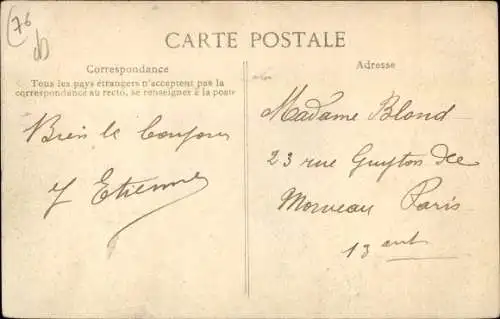 76
CARTE POSTALE
Correspondance
Tous les pays étrangers n'acceptent pas la
correspondance au recto, se renseigner à la poste
Bien le Bonjour
Etienne
Adresse
Madame Blond
23 rue Guyton de
Morveau Paris
13